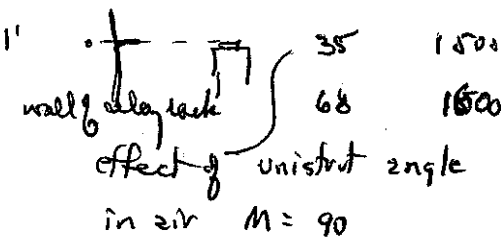 1' 35 1500
wall of relay rack 68 1600
effect of unistrut angle
in air M = 90